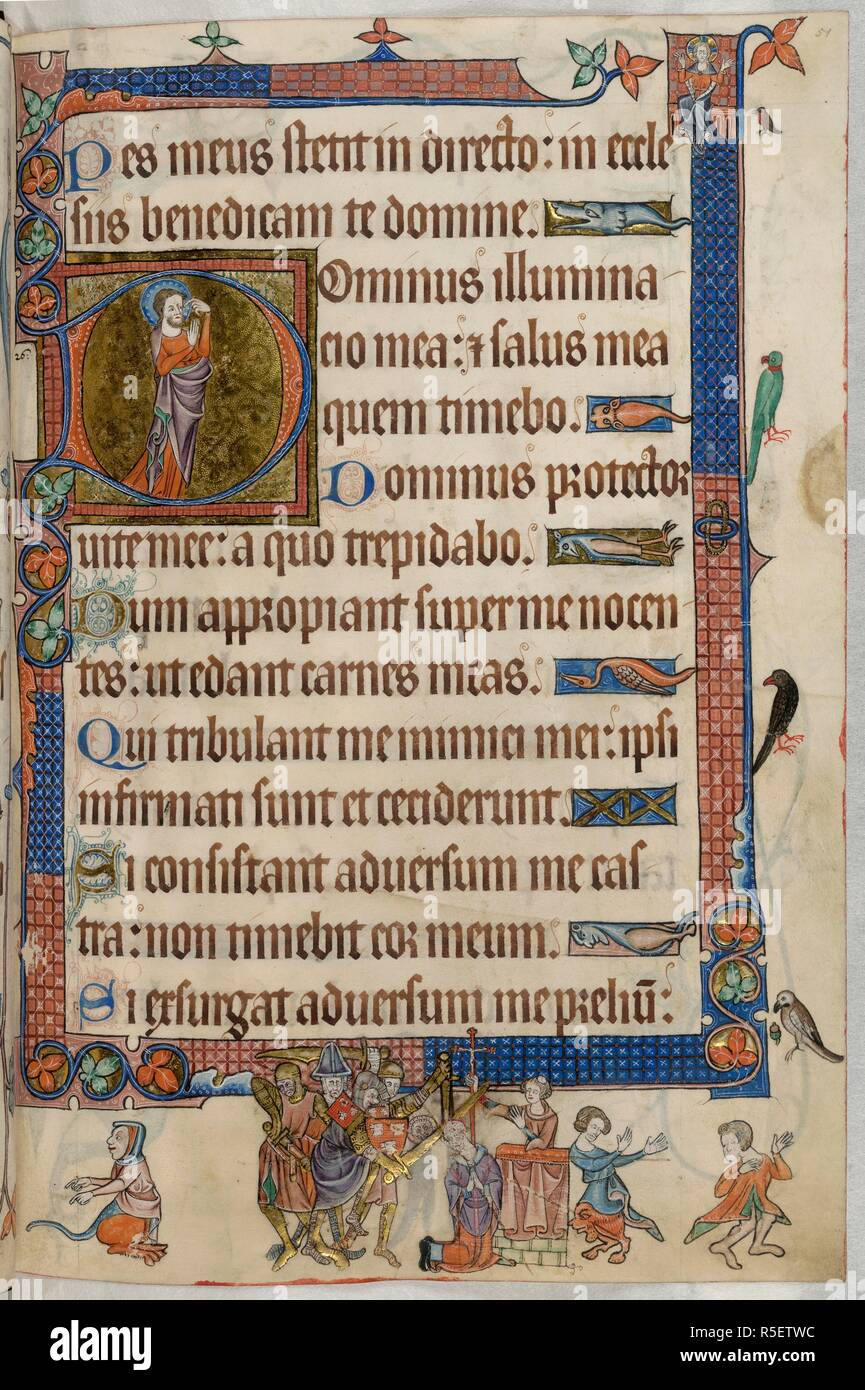 51
Pes meus stetit in directo: in eccle
siis benedicam te domine.
Dominus illumina
cio mea: ⁊ salus mea
26.
quem timebo.
Dominus protector
uite mee: a quo trepidabo.
Dum appropiant super me nocen
tes: ut edant carnes meas.
Qui tribulant me inimici mei: ipsi
infirmati sunt et ceciderunt.
Si consistant aduersum me cas
tra: non timebit cor meum.
Si exsurgat aduersum me preliū:
alamy
Image ID: R5ETWC
www.alamy.com